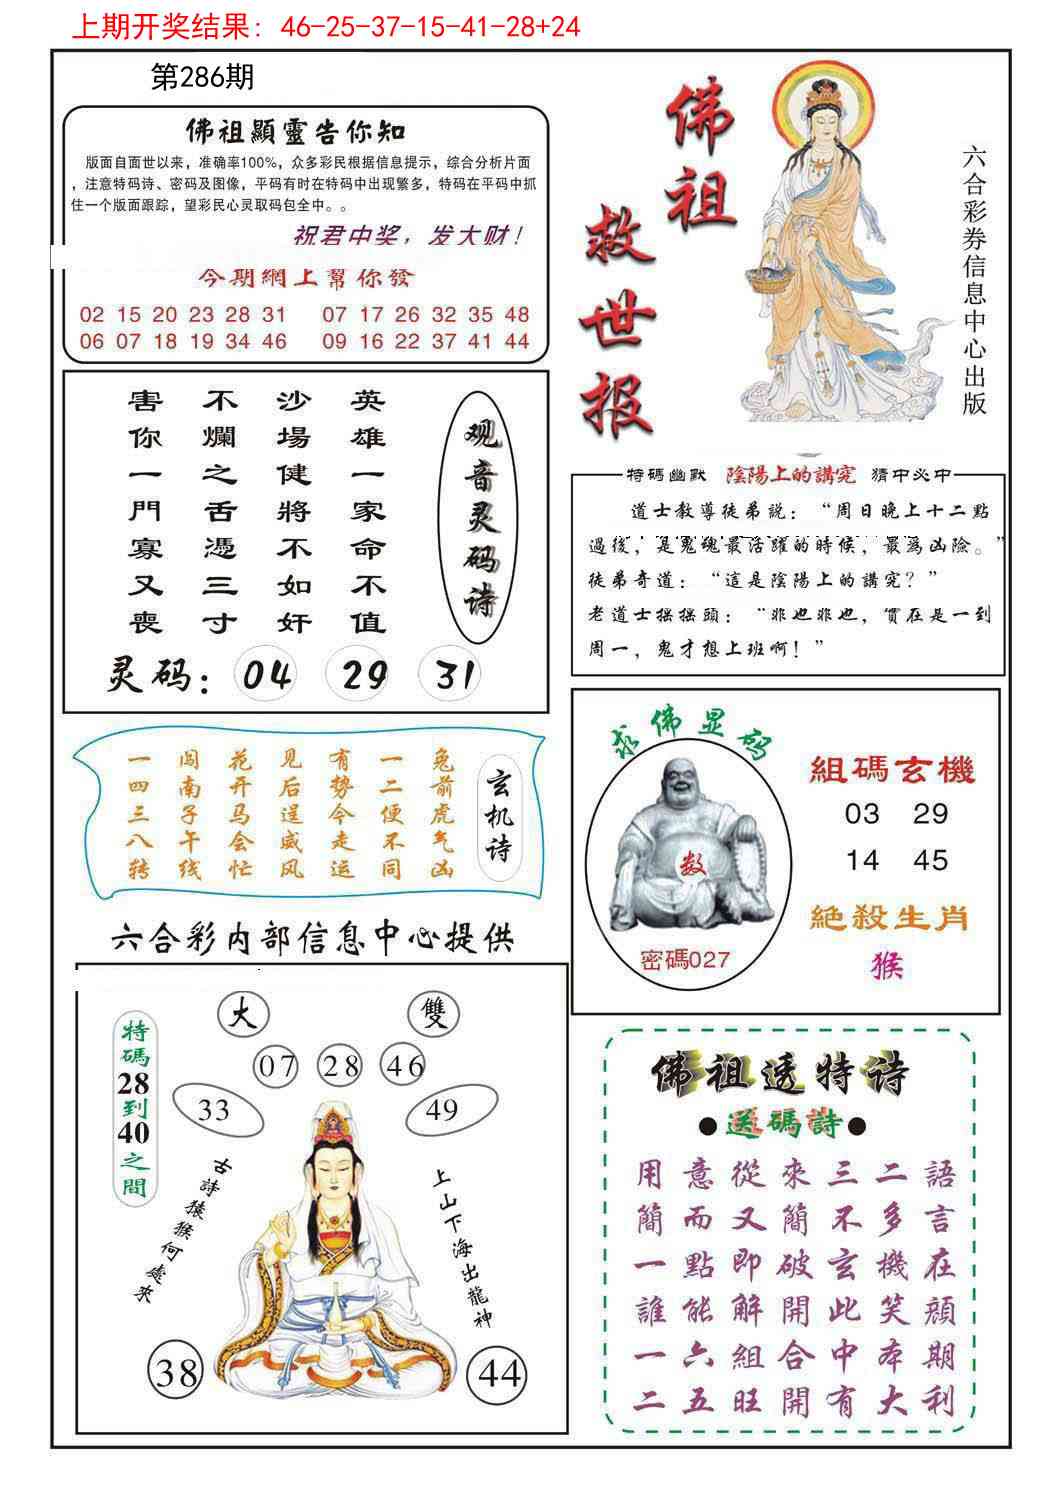 上期开奖结果：46-25-37-15-41-28+24
第286期
佛祖顯靈告你知
版面自面世以来，准确率100%，众多彩民根据信息提示，综合分析片面
，注意特码诗、密码及图像，平码有时在特码中出现繁多，特码在平码中抓
住一个版面跟踪，望彩民心灵取码包全中。。
祝君中奖，发大财！
今期網上幫你發
02 15 20 23 28 31 07 17 26 32 35 48
06 07 18 19 34 46 09 16 22 37 41 44
佛祖救世报
六合彩券信息中心出版
观音灵码诗
英雄一家命不值
沙場健將不如奸
不爛之舌憑三寸
害你一門寡又喪
灵码：04 29 31
特碼幽默 陰陽上的講究 猜中必中
道士教導徒弟説：“周日晚上十二點
過後，是鬼魂最活躍的時候，最爲凶險。”
徒弟奇道：“這是陰陽上的講究？”
老道士摇摇頭：“非也非也，實在是一到
周一，鬼才想上班啊！”
玄机诗
兔前虎气凶
一二便不同
有势今走运
见后逞威风
花开马会忙
闯南子午线
一四三八转
求佛显码
数
密碼027
組碼玄機
03 29
14 45
絕殺生肖
猴
六合彩内部信息中心提供
大 雙
07 28 46
33 49
特碼28到40之間
古詩猿猴何處來
上山下海出龍神
38 44
佛祖透特诗
●送碼詩●
用意從來三二語
簡而又簡不多言
一點即破玄機在
誰能解開此笑顔
一六組合中本期
二五旺開有大利